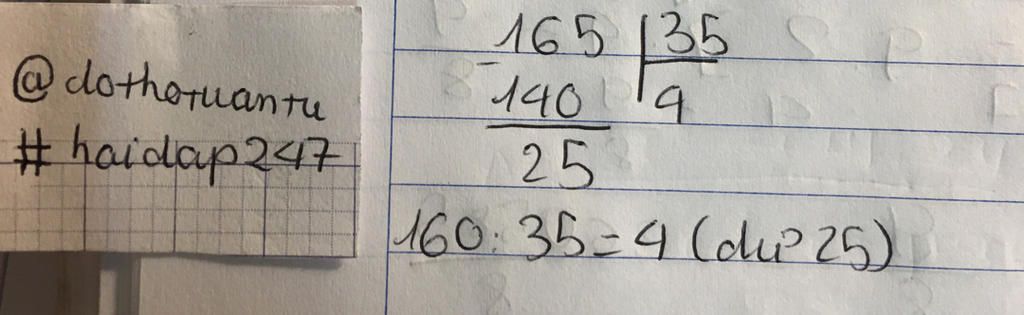 @dothotuantu
#haidap247
165 35
-
140 4
25
160: 35=4 (dư 25)